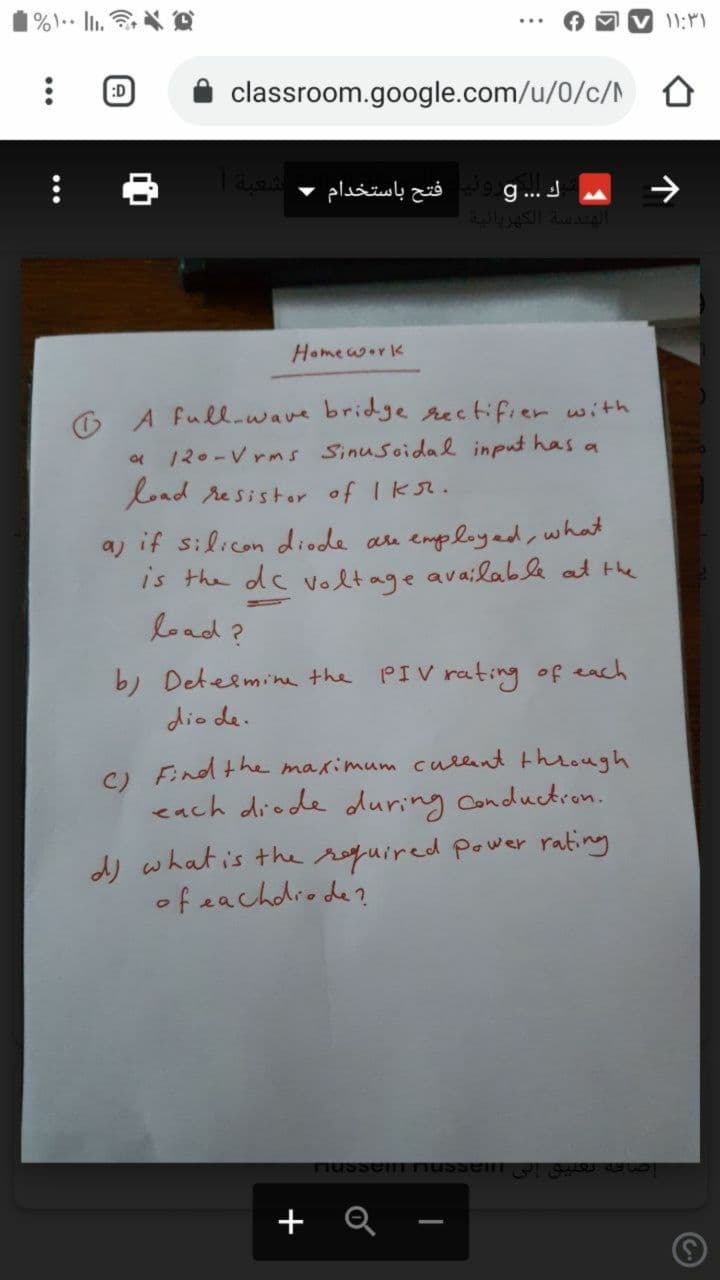 %١٠٠ ... ١١:٣١
:D classroom.google.com/u/0/c/
فتح باستخدام ك ... g
شعبة أ
الهندسة الكهربائية
Homework
① A full-wave bridge rectifier with
a 120-Vrms Sinusoidal input has a
load resistor of 1KΩ.
a) if silicon diode are employed, what
is the dc voltage available at the
load?
b) Determine the PIV rating of each
diode.
c) Find the maximum current through
each diode during conduction.
d) what is the required power rating
of each diode?
إضافة تعليق إلى Hussein Hussein
+ −